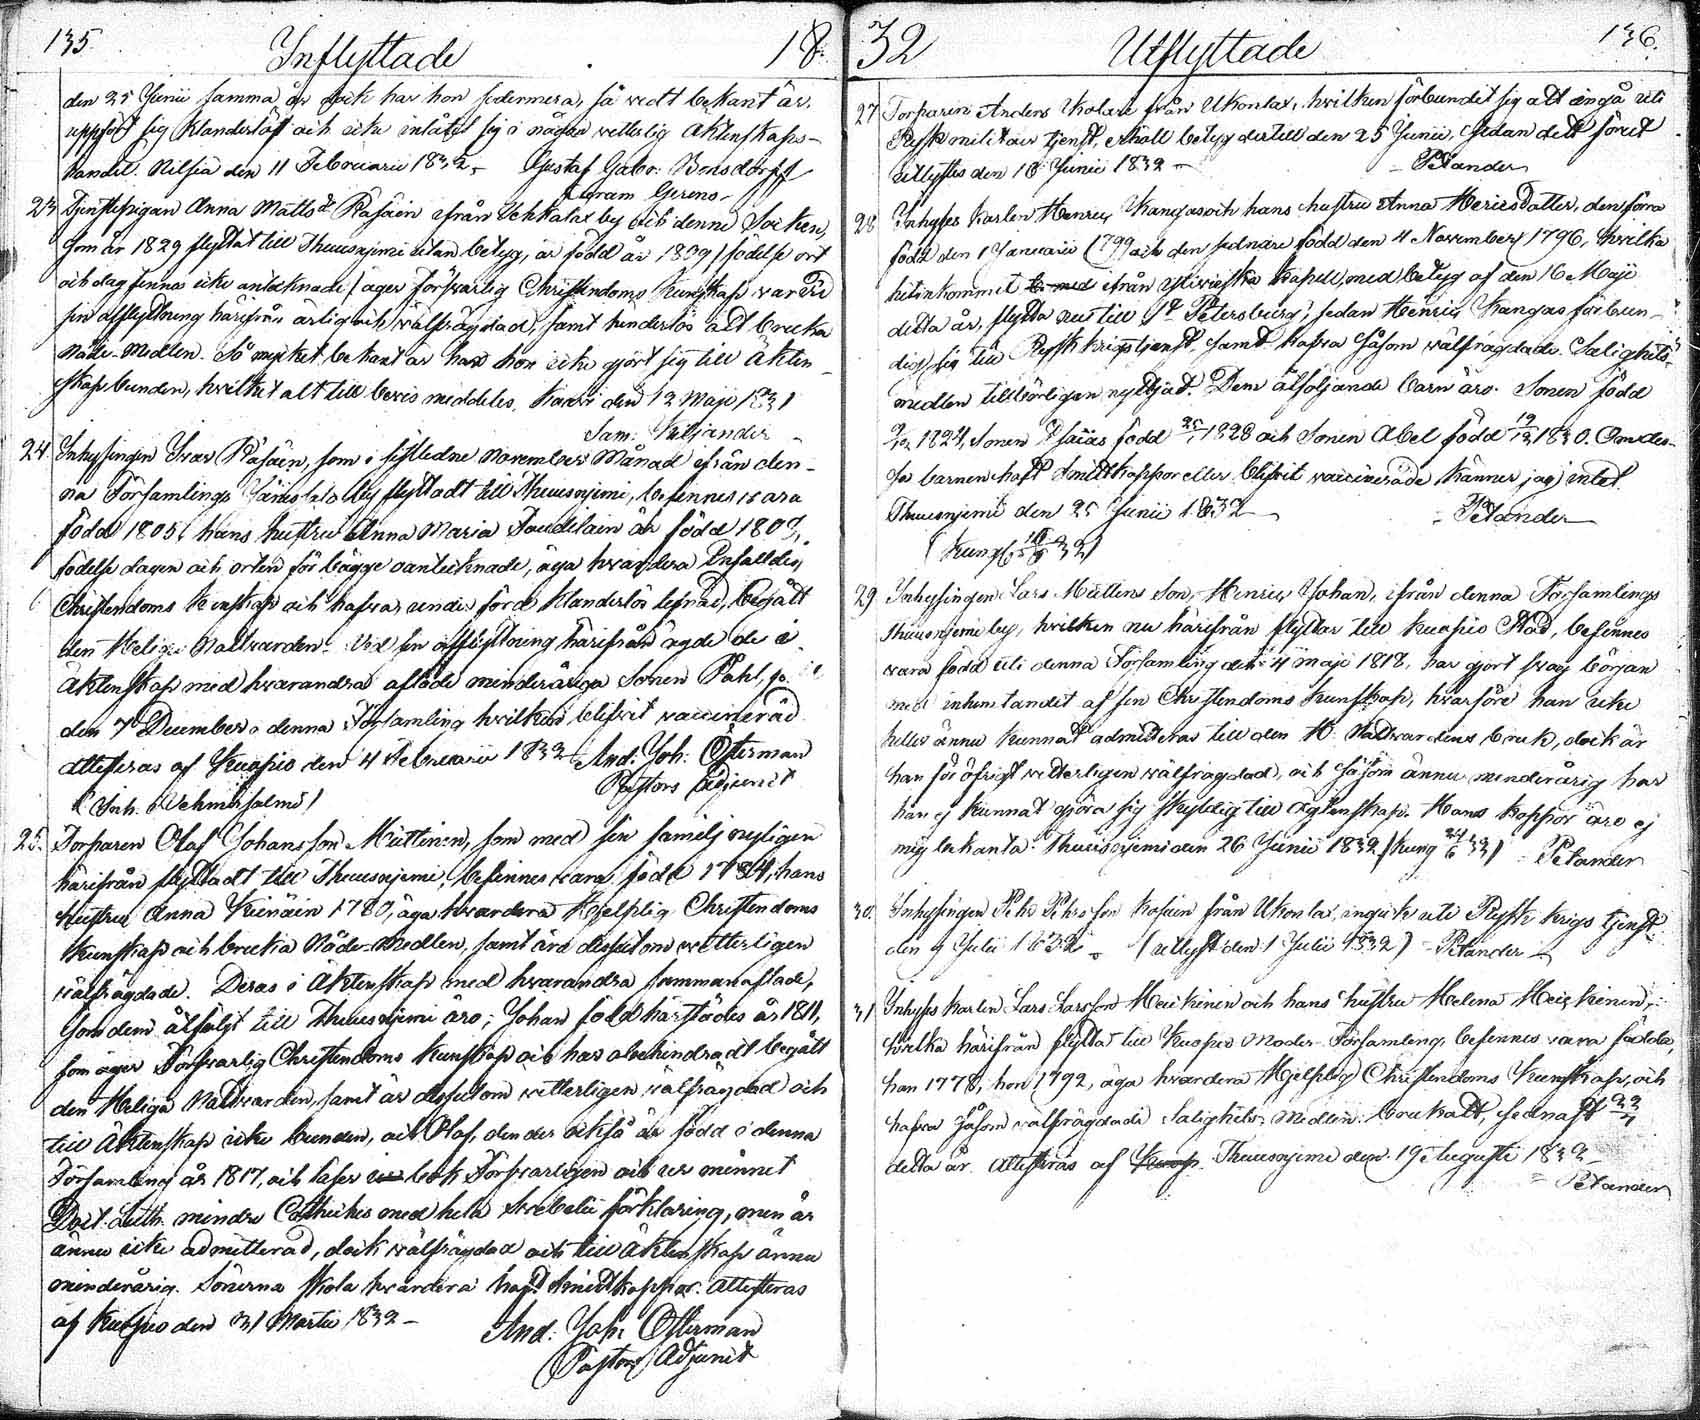 135. Inflyttade 18
den 25 Junii samma år dock har hon sedermera, så vidt bekant är,
uppfört sig klanderlöst och icke inlåtit sig i någon vetterlig Äktenskaps-
handel. Nilsiä den 11 Februarii 1832. Gustaf Gabr. Bonsdorff
23 Tjenstepigan Anna Matts dr Räsäin ifrån Vehkalax by och denne Socken,
som år 1829 flyttat till Thuusnjemi utan betyg, är född år 1809 / födelse ort
och dag finnes icke antecknade / äger försvarlig Christendoms Kunskap var vid
sin afflyttning härifrån ärlig och välfrägdad, samt hinderlös att bruka
Nåde-Medlen. Så mycket bekant är har hon icke gjort sig till äkten-
skap bunden, hvilket alt till bevis meddeles. den 12 Maji 1831
Sam.
24. Inhysingen Ivar Räsäin, som i sistledne November Månad ifrån den-
na Församlings by flyttadt till Thuusnjemi, befinnes vara
född 1805, hans hustru Anna Maria är född 1807,
födelse dagen och orten för bägge oantecknade, äga hvardera Enfalldig
Christendoms kunskap och hafva under förd klanderlös lefnad, begått
den Heliga Nattvarden. Vid sin afflyttning härifrån ägde de i
Äktenskap med hvarandra aflade minderåriga Sonen Pahl,
den 7 December i denna Församling hvilken blifvit vaccinerad
attesteras af Kuopio den 4 Februarii 1832 And: Joh: Österman
Pastors Adjunct
( Inh. i Vehmasalmi )
25. Torparen Olaf Johansson Miettinen, som med sin familj nyligen
härifrån flyttadt till Thuusnjemi, befinnes vara född 1784, hans
Hustru Anna 1780, äga hvardera Hjelplig Christendoms
Kunskap och bruka Nåde-Medlen, samt äro dessutom vetterligen
välfrägdade. Deras i Äktenskap med hvarandra sammanaflade,
som dem åtföljt till Thuusnjemi äro; Johan född härstädes år 1811,
som äger Försvarlig Christendoms kunskap och har obehindradt begått
den Heliga Nattvarden, samt är dessutom vetterligen välfrägdad och
till Äktenskap icke bunden, och Olaf, den der också är född i denna
Församling år 1817, och läser i bok Försvarligen och ur minnet
Doct. Luth. mindre Cathechis med hela Svebelii förklaring, men är
ännu icke admitterad, dock välfrägdad och till Äktenskap ännu
minderårig. Sönerna skola hvardera haft Smittkoppor. Attesteras
af Kuopio den 31 Martii 1832 – And: Joh: Österman
Pastors Adjunct
32 Utflyttade 136.
27 Torparen Anders från Ukonlax, hvilken förbundit sig att ingå uti
Rysk militair tjenst, erhöll betyg dertill den 25 Junii, sedan dett förut
utlystes den 10 Junii 1832 – Petander
28 Inhyses Karlen Henric Kangas och hans hustru Anna Henricsdatter, den förra
född den 1 Januarii 1799 och den sednare född den 4 November 1796, hvilka
hitinkommit ifrån kapell, med betyg af den 16 Maji
detta år, flytta nu till St Petersburg, sedan Henric Kangas förbun-
dit sig till Rysk krigstjenst, samt hafva såsom välfrägdade Salighets-
medlen tillbörligen nyttjat. Dem åtföljande barn äro. Sonen född
1824, Sonen Esaias född 1828 och Sonen Abel född 1830. Om des-
se barnen haft Smittkoppor eller blifvit vaccinerade känner jag intet.
Thuusnjemi den 25 Junii 1832 – Petander
29 Inhysingen Lars Miettinens Son, Henric Johan, ifrån denna Församlings
Thuusnjemi by, hvilken nu härifrån flyttar till Kuopio Stad, befinnes
vara född uti denna Församling den 4 maji 1818, har gjort svag början
med inhemtandet af sin Christendoms kunskap, hvarföre han icke
heller ännu kunnat admitteras till den H. Nattvardens bruk, dock är
han för öfrigt vetterligen välfrägdad, och såsom ännu minderårig har
han ej kunnat göra sig skyldig till ägtenskap. Hans koppor äro ej
mig bekanta. Thuusnjemi den 26 Junii 1832 / Kung 24/6 32 / Petander
30. Inhysingen Pehr Pehrsson från Ukonlax, ingick uti Rysk krigs tjenst
den 9 Julii 1832 – (utlyst den 1 Julii 1832) – Petander
31 Inhyses Karlen Lars Larsson Heickinen och hans hustru Helena Heickinen,
hvilka härifrån flytta till Kuopio Moder-Församling, befinnes vara födda,
han 1778, hon 1792, äga hvardera Hjelplig Christendoms kunskap, och
hafva såsom välfrägdade Salighets Medlen brukatt, sednast 22/7
detta år. Attesteras af Thuusnjemi den 19 Augusti 1832 –
Petander